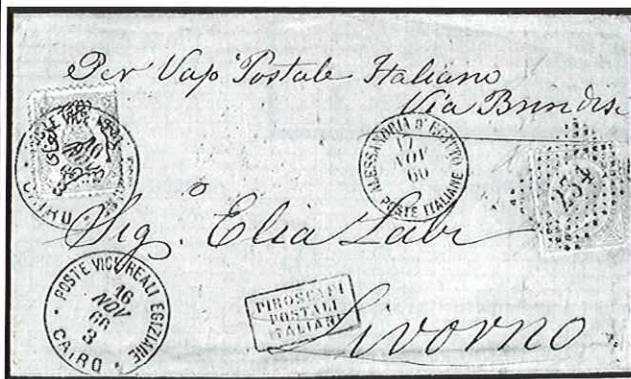 Per Vap Postale Italiano
Via Brindisi
ALESSANDRIA D'EGITTO
17
NOV
66
POSTE ITALIANE
234
CAIRO
Sig.o Elia Labi
POSTE VICE REALI EGIZIANE
16
NOV
66
3
CAIRO
PIROSCAFI
POSTALI
ITALIANI
Livorno